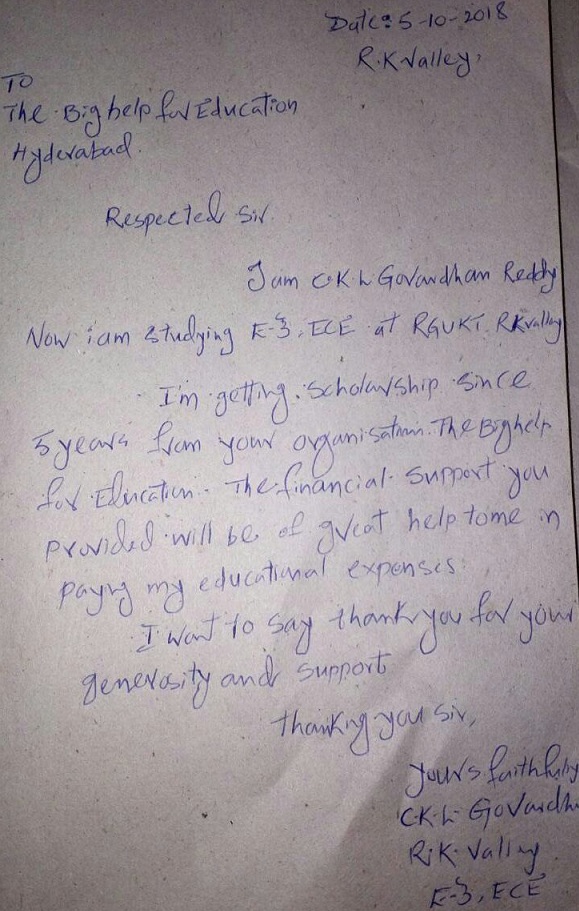 Date: 5-10-2018
R.K Valley,
TO
The Big help for Education
Hyderabad.
Respected Sir.
I am C.K.L Govardhan Reddy
Now i am studying E-3, ECE at RGUKT. RK valley
I'm getting scholarship since
5 years from your organisation. The Big help
for Education. The financial support you
provided will be of great help to me in
paying my educational expenses.
I want to say thank you for your
generosity and support
thanking you sir,
yours faithfully
C.K.L. Govardh
R.K. Valley
E-3, ECE